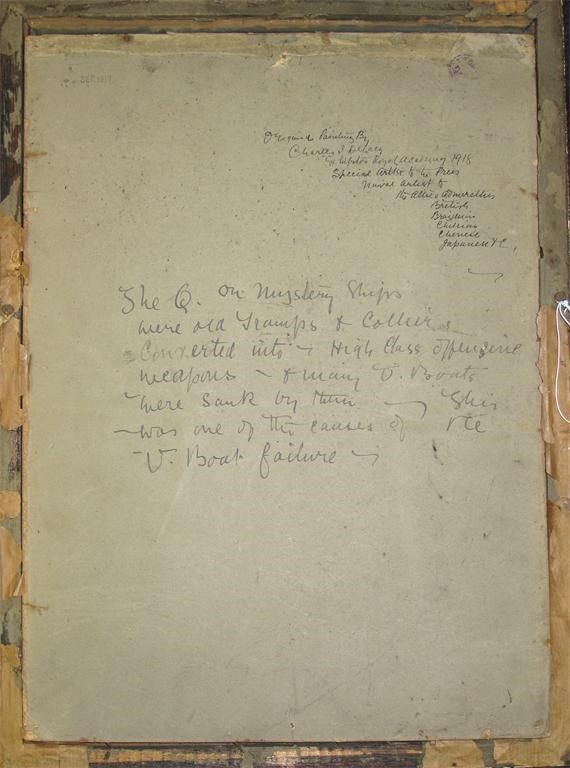 SEP 1918
Original Painting By
Charles J. De Lacy
Exhibitor Royal Academy 1918
Special Artist to the Press
Naval Artist to
the Allied Admiralties
British
Brazilian
Chilian
Chinese
Japanese &c,
The Q. or Mystery Ships
were old Tramps & Colliers
Converted into High Class offensive
weapons - & many U. Boats
were sunk by them - This
was one of the causes of the
U. Boat failure